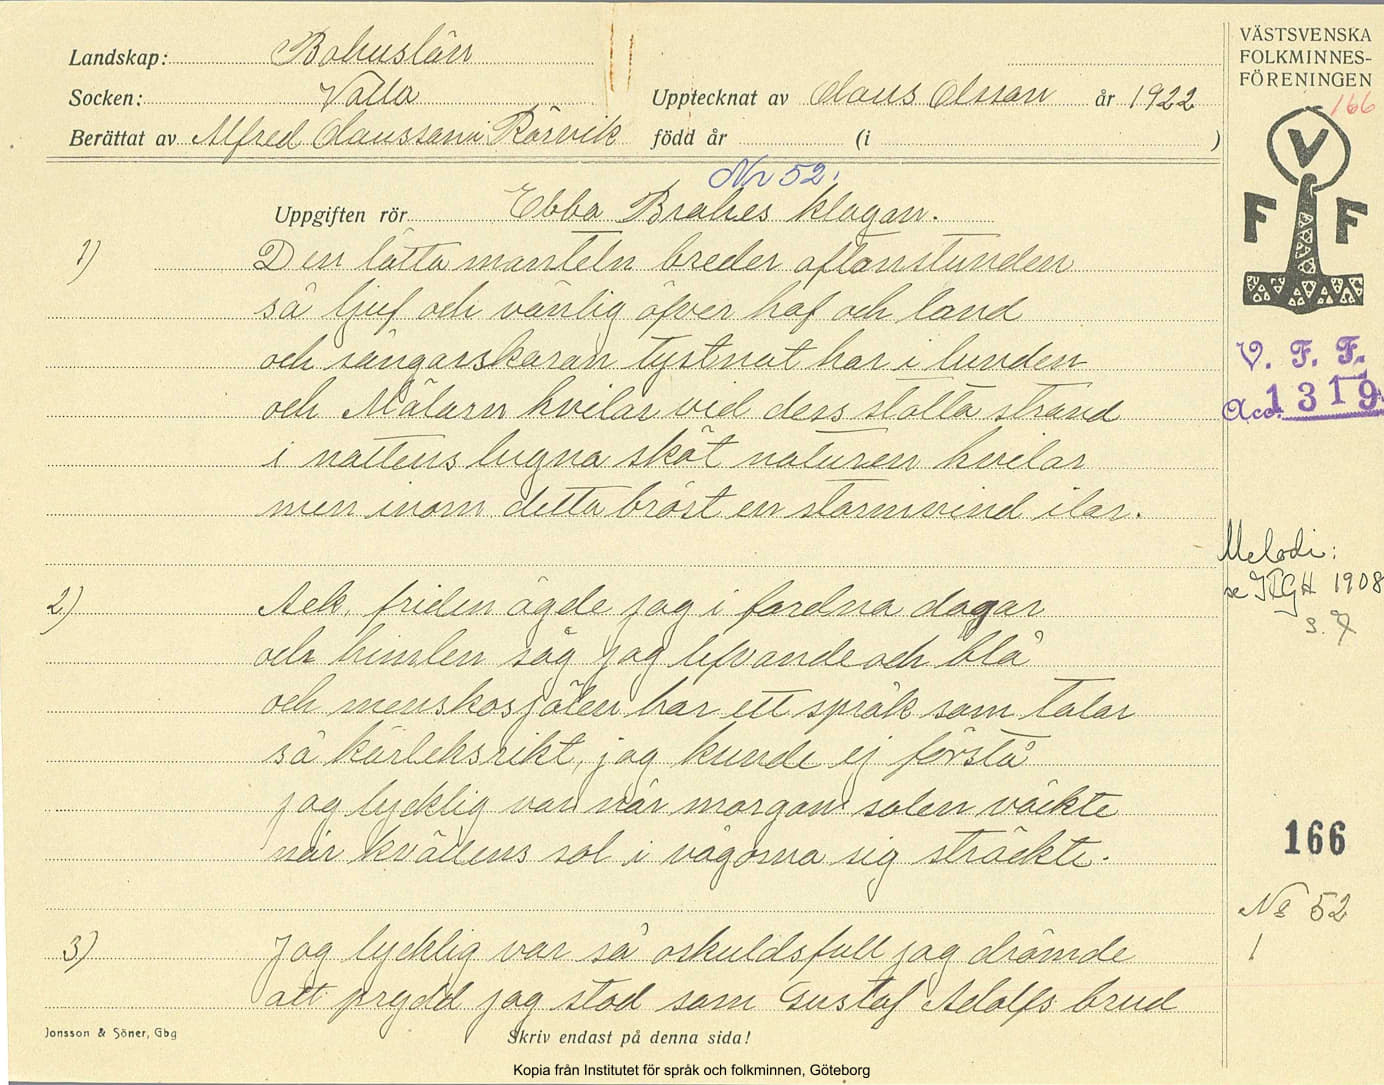 Landskap: Bohuslän
Socken: Valla
Upptecknat av Claus Olsson år 1922
Berättat av Alfred Claussson i Rörvik född år (i )
VÄSTSVENSKA
FOLKMINNES-
FÖRENINGEN
166
V
F F
Nr 52.
Uppgiften rör Ebba Brahes klagan.
1) Den lätta manteln breder aftonstunden
så ljuf och vänlig öfver haf och land
och sångarskaran tystnat har i lunden
och Mälarn hvilar vid dess stolta strand
i nattens lugna sköt naturen hvilar
men inom detta bröst en stormvind ilar.
V. F. F.
Acc. 1319
Melodi:
se 1908
s. 7
2) Ack, friden ägde jag i fordna dagar
och himlen såg jag lefvande och blå
och menskosjälen har ett språk som talar
så kärleksrikt, jag kunde ej förstå
jag lycklig var när morgonsolen väckte
när kvällens sol i vågorna sig sträckte.
166
No 52
1
3) Jag lycklig var så oskuldsfull jag drömde
att prydd jag stod som Gustaf Adolfs brud
Jonsson & Söner, Gbg
Skriv endast på denna sida!
Kopia från Institutet för språk och folkminnen, Göteborg